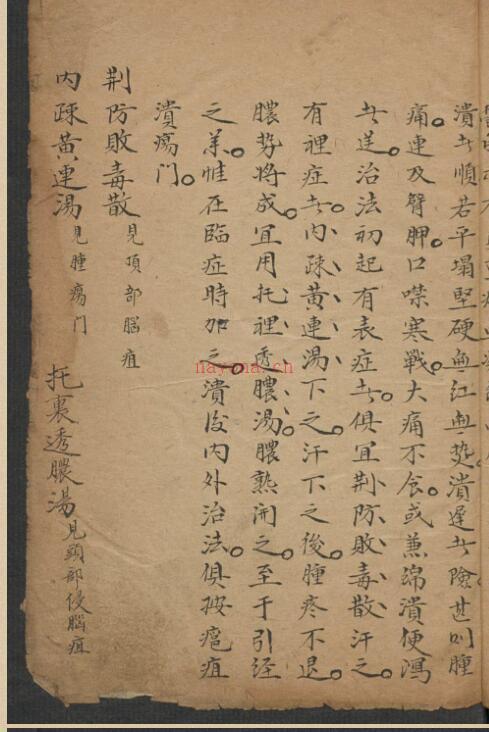 潰者順若平塌堅硬無紅無熱潰遲者險甚則腫
痛連及臂胛口噤寒戰大痛不食或兼綿潰便瀉
者逆治法初起有表症者俱宜荆防敗毒散汗之
有裡症者內疎黃連湯下之汗下之後腫疼不退
膿勢將成宜用托裡透膿湯膿熟開之至于引經
之藥惟在臨症時加之潰後內外治法俱按癰疽
潰瘍門
荆防敗毒散 見項部腦疽
內疎黃連湯 見腫瘍門 托裏透膿湯 見頭部侵腦疽
hayona.cn